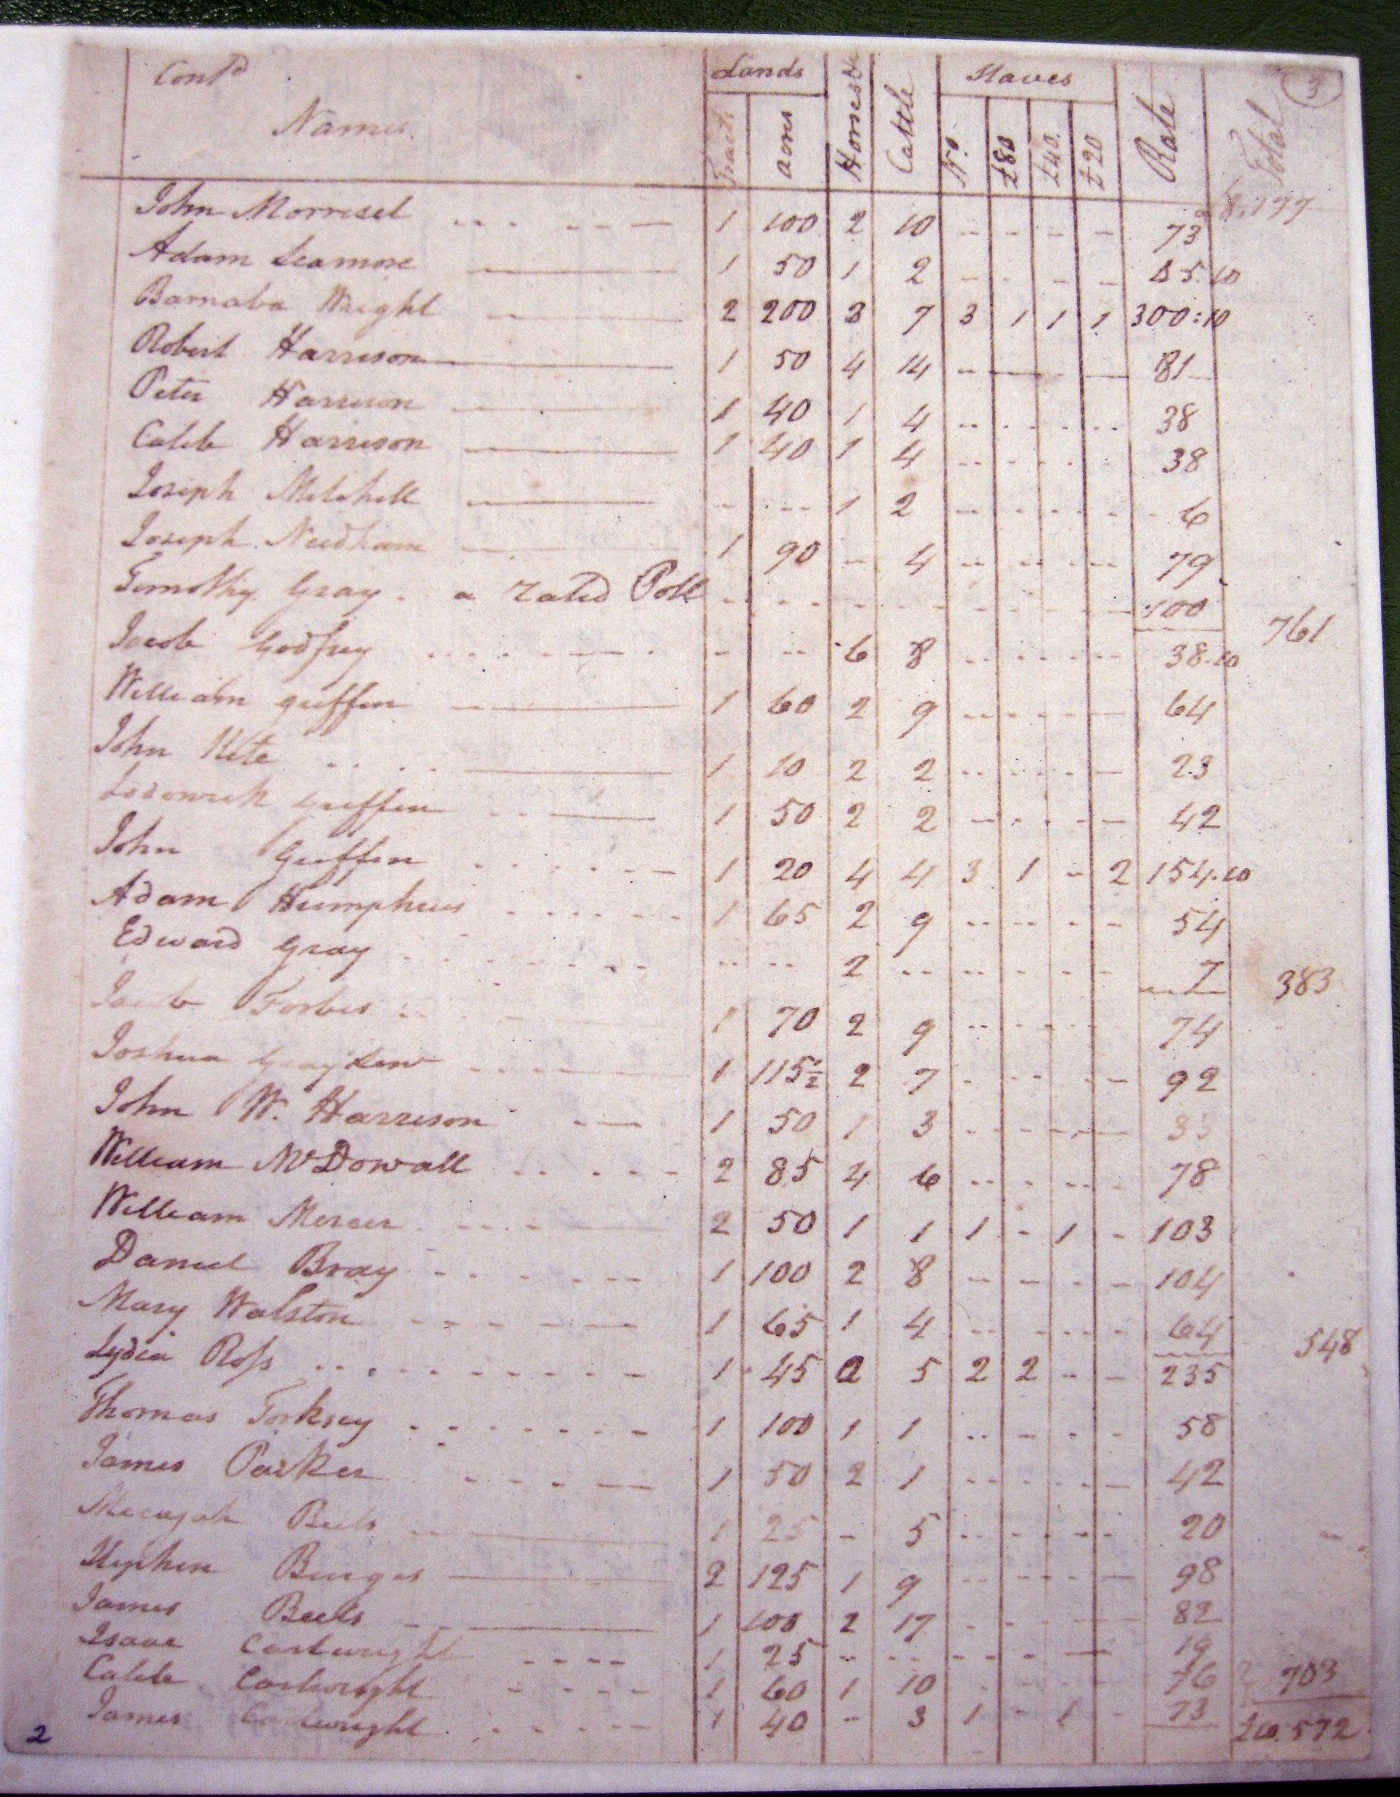 Contd Lands Horses & Cattle Slaves Rate Total 3
Names Tracts acres No. £80 £40 £20
8,177
John Morrisel 1 100 2 10 - - - - 73
Adam Seamore 1 50 1 2 - - - - 45.10
Barnaba Wright 2 200 3 7 3 1 1 1 300:10
Robert Harrison 1 50 4 14 - - - - 81
Peter Harrison 1 40 1 4 - - - - 38
Caleb Harrison 1 40 1 4 - - - - 38
Joseph Mitchell - - 1 2 - - - - 6
Joseph Needham 1 90 - 4 - - - - 79
Timothy Gray. a rated Poll - - - - - - - - 100
761
Jacob Godfrey - - 6 8 - - - - 38.10
William Griffin 1 60 2 9 - - - - 64
John Kite 1 10 2 2 - - - - 23
Lodowick Griffin 1 50 2 2 - - - - 42
John Griffin 1 20 4 4 3 1 - 2 154.10
Adam Humphries 1 65 2 9 - - - - 54
Edward Gray - - 2 - - - - - 7
383
Jacob Forbes 1 70 2 9 - - - - 74
Joshua 1 115½ 2 7 - - - - 92
John W. Harrison 1 50 1 3 - - - - 33
William McDowall 2 85 4 6 - - - - 78
William Mercer 2 50 1 1 1 - 1 - 103
Daniel Bray 1 100 2 8 - - - - 104
Mary Walston 1 65 1 4 - - - - 64
548
Lydia Ross 1 45 2 5 2 2 - - 235
Thomas Torksey 1 100 1 1 - - - - 58
James Parker 1 50 2 1 - - - - 42
Mecajah Beels 1 25 - 5 - - - - 20
Stephen Burges 2 125 1 9 - - - - 98
James Beels 1 100 2 17 - - - - 82
Isaac Cartwright 1 25 - - - - - - 19
Caleb Cartwright 1 60 1 10 - - - - 76
703
James Cartwright 1 40 - 3 1 - 1 - 73
£10.572
2